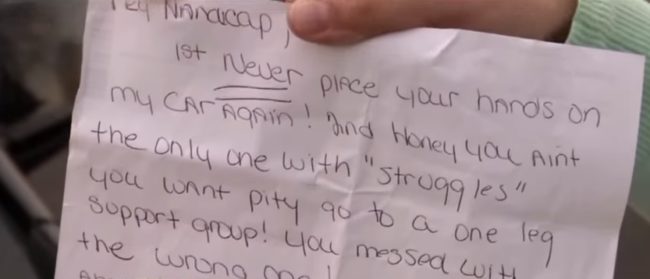 Hey Handicap,
1st Never place your hands on
my car AGAIN! 2nd Honey you aint
the only one with "struggles"
you want pity go to a one leg
support group! You messed with
the wrong one!